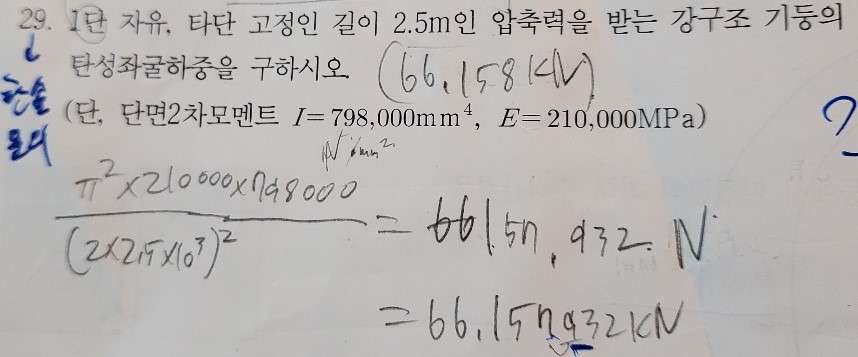 29. 1단 자유, 타단 고정인 길이 2.5m인 압축력을 받는 강구조 기둥의
탄성좌굴하중을 구하시오. (66.158KN)
(단, 단면2차모멘트 I=798,000mm⁴, E=210,000MPa) ?
N/mm²
π²×210000×798000
(2×2.5×10³)²
= 66157.932 N
= 66.157932KN